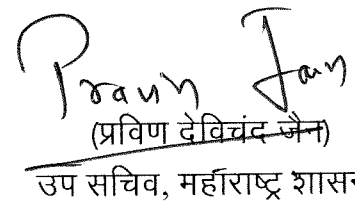 Pravin Jain
(प्रविण देविचंद जैन)
उप सचिव, महाराष्ट्र शासन